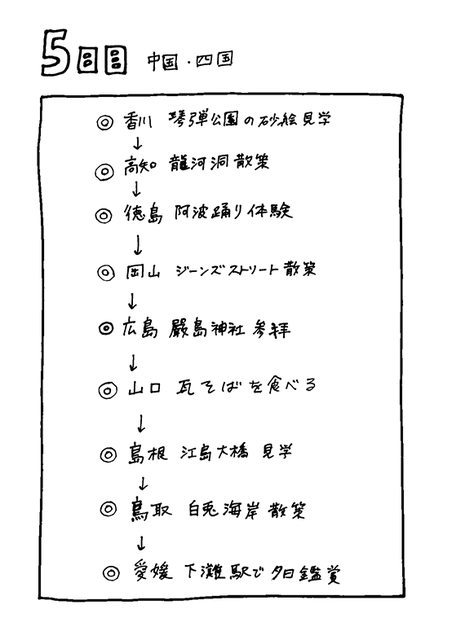 5日目 中国・四国
◎ 香川 琴弾公園の砂絵見学
↓
◎ 高知 龍河洞散策
↓
◎ 徳島 阿波踊り体験
↓
◎ 岡山 ジーンズストリート散策
↓
◎ 広島 厳島神社参拝
↓
◎ 山口 瓦そばを食べる
↓
◎ 島根 江島大橋 見学
↓
◎ 鳥取 白兎海岸散策
↓
◎ 愛媛 下灘駅で夕日鑑賞